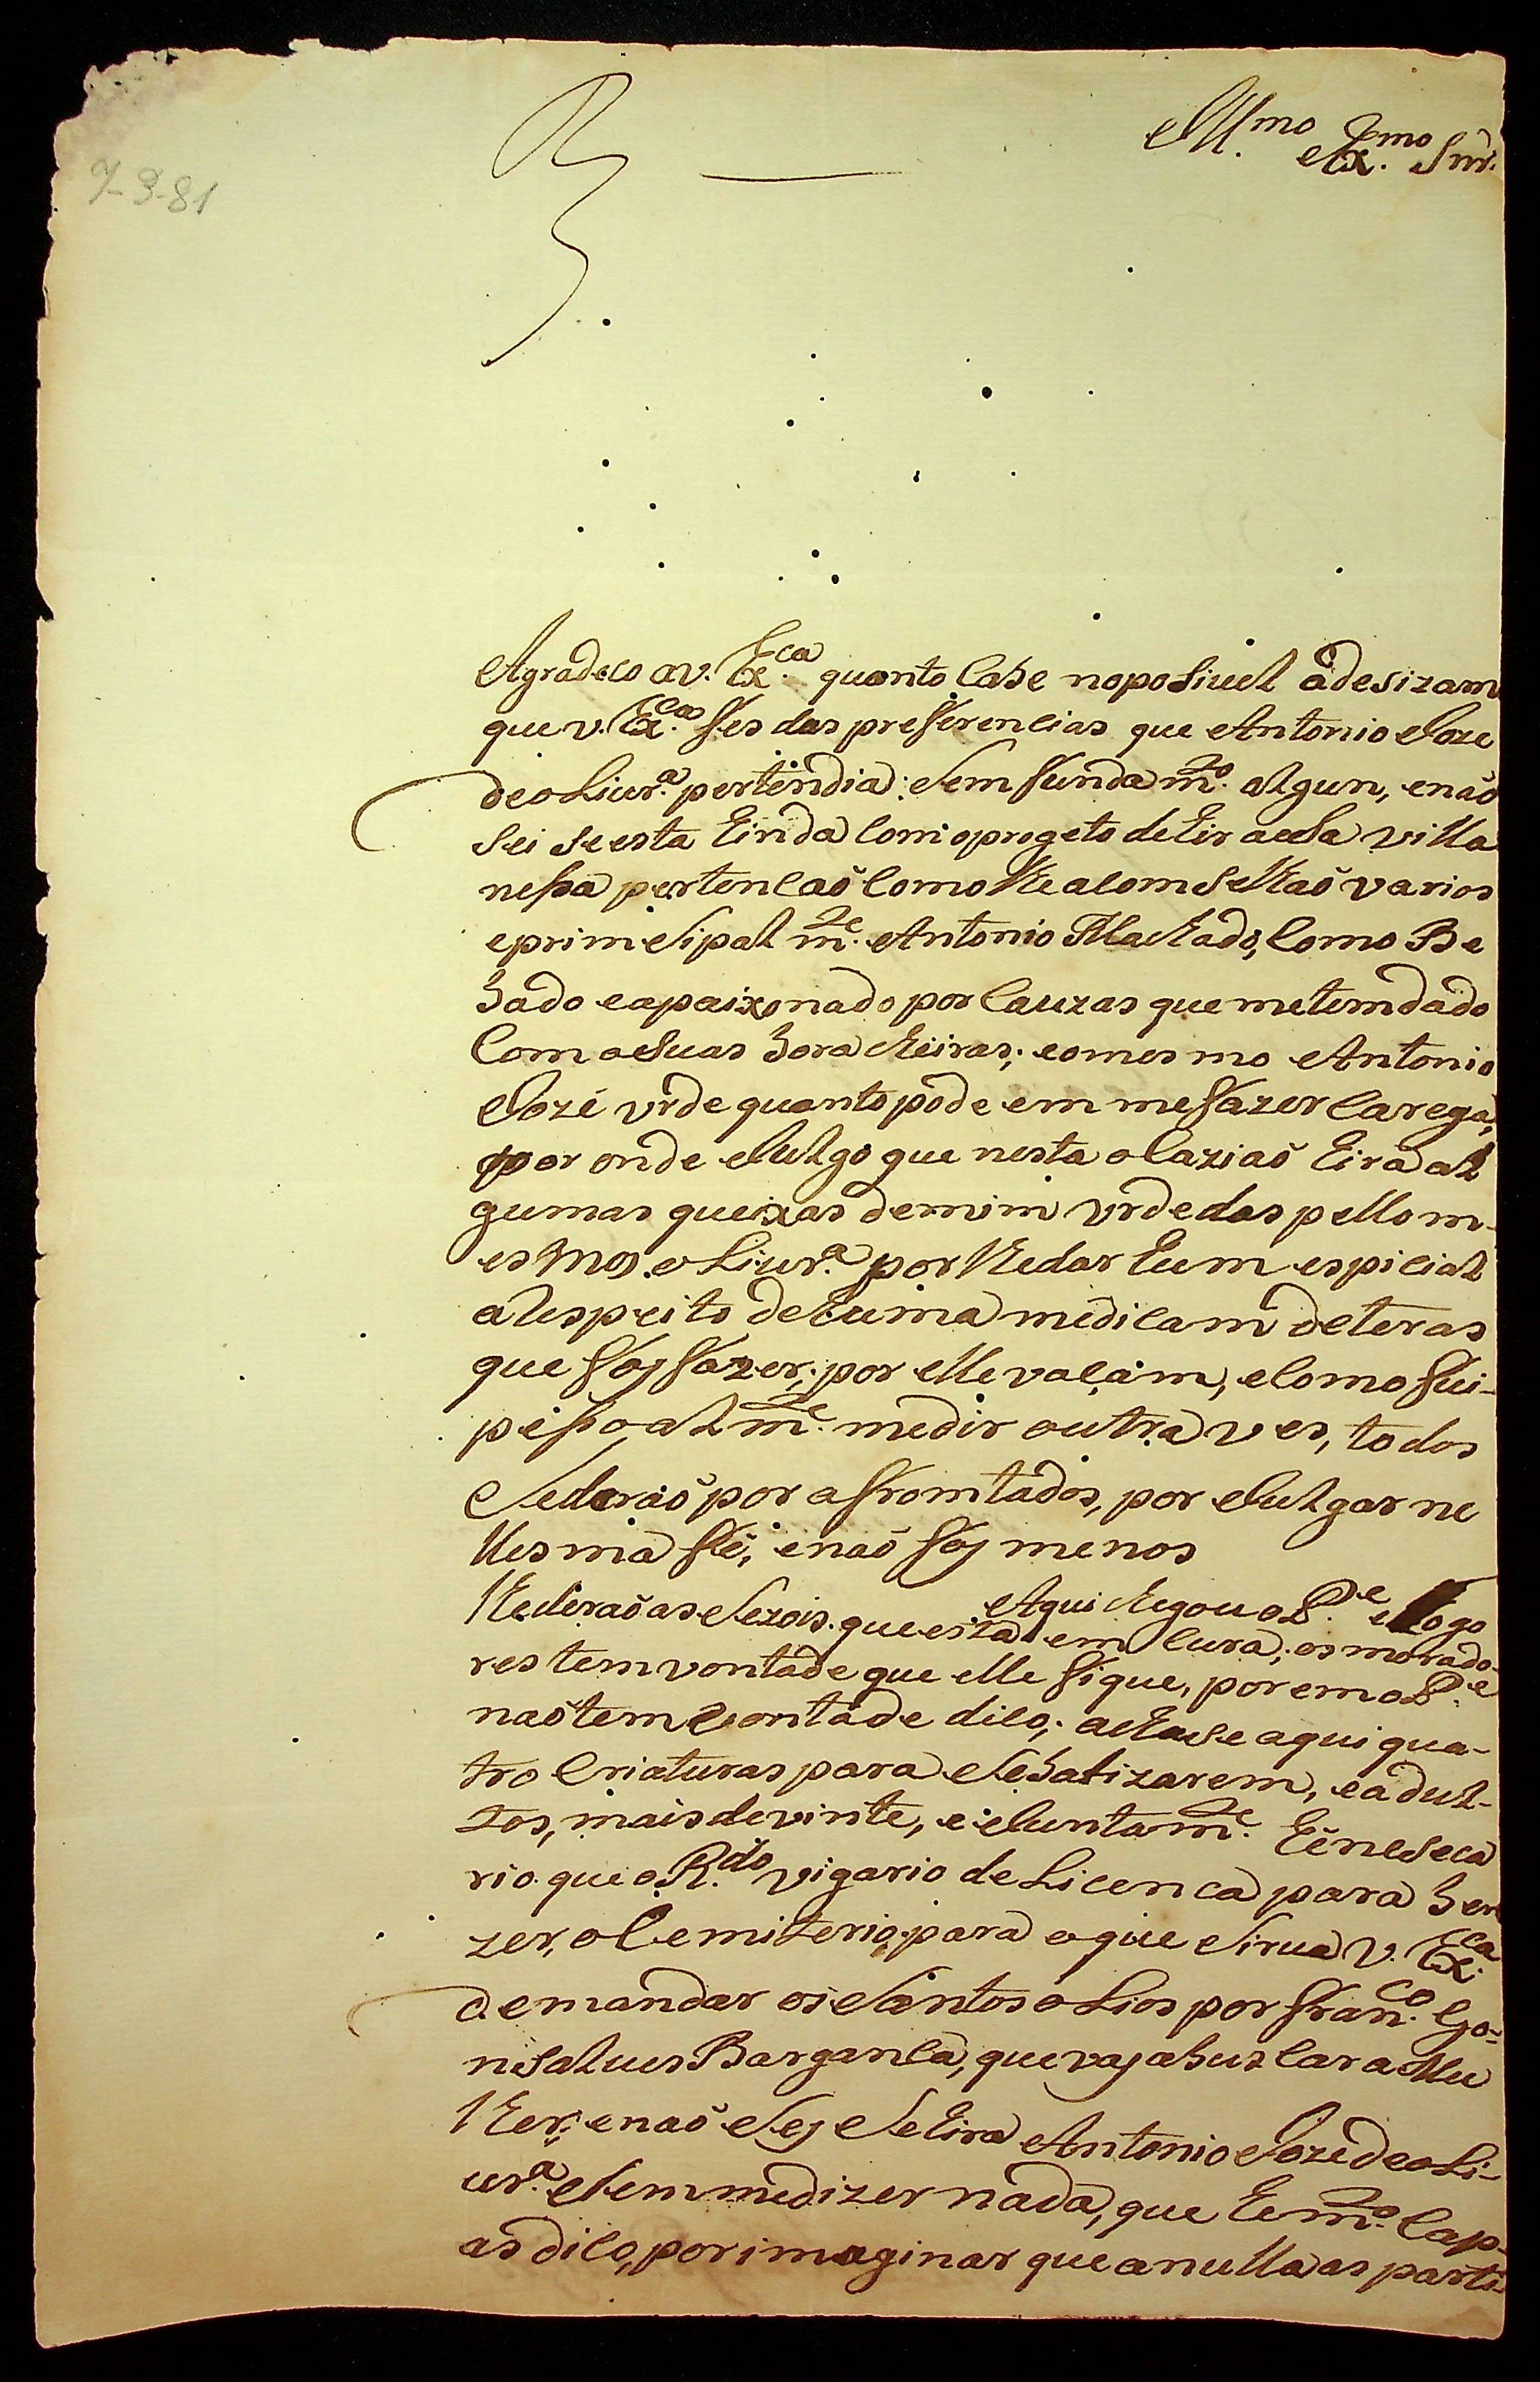 Ill.mo e Ex.mo Snr.
7-3-81
R
Agradeco a v. Ex.ca quanto cabe no posiuel a desizam
que v. Ex.ca fes das preferencias que Antonio Joze
de oLiur.a pertendia: sem fundam.to algun, e naõ
sei se esta hinda com o progeto de hir a esa villa
nessa pertencaõ como lhe acomselhaõ varios
e primsipalm.te Antonio Machado, como Be
bado e apaixonado por cauzas que me tem dado
Com as suas boracheiras; e o mesmo Antonio
Jozé vrde quanto póde em me fazer carega,
por onde Julgo que nesta ocaziaõ hira al
gumas queixas de mim vrdedas pello m-
esmo oLiur.a por lhe dar hum espicial
a Respeito de huma medicam de teras
que foj fazer; por elle vaçam, e como fui
pessoalm.te medir outra ves, todos
se deraõ por afromtados, por Julgar ne
lles ma fé, e naõ foj menos
Aqui chegou o P.e e logo
lhe deraõ as sezois. que está em cura; os morado-
res tem vontade que elle fique, porem o P.e
naõ tem vontade diço; achase aqui qua-
tro criaturas para se batizarem, e adul-
tos, mais de vinte, e Juntam.te hé neseca
rio que o R.do vigario de Licenca para ben
zer, o Cemiterio; para o que sirua v. Ex.ca
de mandar os santos oLios por Fran.co Go-
nsalues Barganca, que vaj a buscar a Mu
lher; e naõ sej se hira Antonio Joze de oLi-
ur.a sem me dizer nada, que he m.to cap-
as diço, por imaginar que anulla as parti-